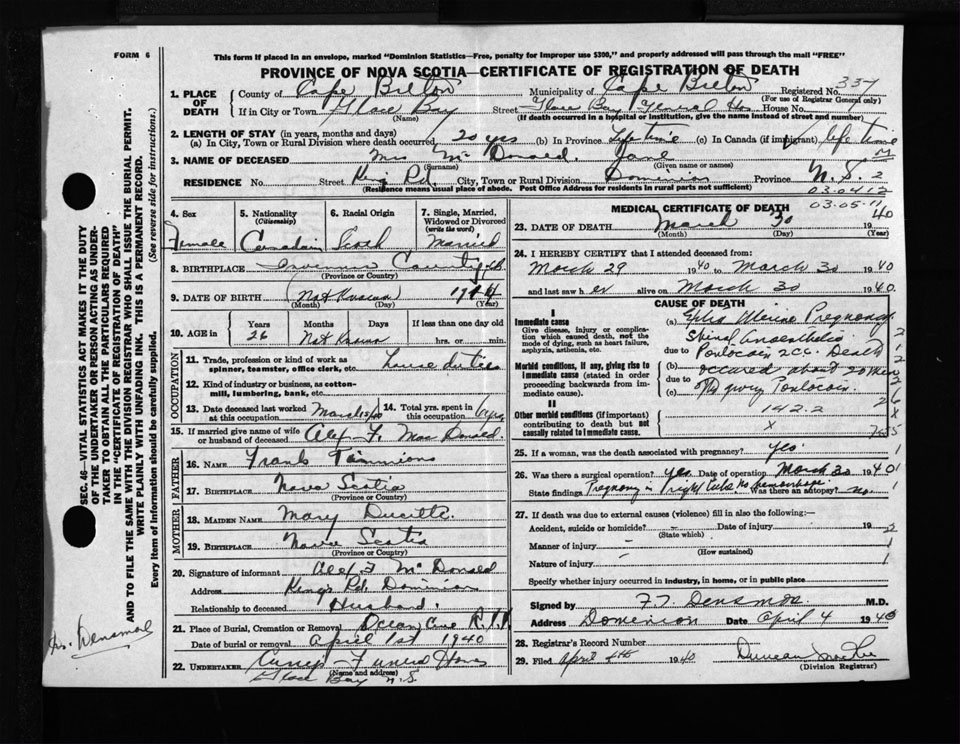 FORM 6
This form if placed in an envelope, marked "Dominion Statistics—Free, penalty for improper use $300," and properly addressed will pass through the mail "FREE"
PROVINCE OF NOVA SCOTIA—CERTIFICATE OF REGISTRATION OF DEATH
1. PLACE OF DEATH County of Cape Breton Municipality of Cape Breton Registered No. 337
(For use of Registrar General only)
If in City or Town Glace Bay Street Glace Bay General Hos House No.
(Name) (If death occurred in a hospital or institution, give the name instead of street and number)
2. LENGTH OF STAY (in years, months and days)
(a) In City, Town or Rural Division where death occurred 20 yrs (b) In Province Life time (c) In Canada (if immigrant) life time
3. NAME OF DECEASED Mrs McDonald Jane
(Surname) (Given name or names)
RESIDENCE No. Street King Rd. City, Town or Rural Division Dominion Province N.S. 2
(Residence means usual place of abode. Post Office Address for residents in rural parts not sufficient)
03.04 12
03-05-11
4. Sex Female
5. Nationality (Citizenship) Canadian
6. Racial Origin Scotch
7. Single, Married, Widowed or Divorced (write the word) Married
8. BIRTHPLACE Inverness County
(Province or Country)
9. DATE OF BIRTH (Not Known) 1914
(Month) (Day) (Year)
10. AGE in Years Months Days If less than one day old
26 Not Known hrs. or min.
OCCUPATION
11. Trade, profession or kind of work as spinner, teamster, office clerk, etc. house duties
12. Kind of industry or business, as cotton-mill, lumbering, bank, etc.
13. Date deceased last worked at this occupation
14. Total yrs. spent in this occupation
15. If married give name of wife or husband of deceased Alex F. MacDonald
FATHER
16. NAME Frank
17. BIRTHPLACE Nova Scotia
(Province or Country)
MOTHER
18. MAIDEN NAME Mary
19. BIRTHPLACE Nova Scotia
(Province or Country)
20. Signature of informant Alex F McDonald
Address Kings Rd. Dominion
Relationship to deceased Husband.
21. Place of Burial, Cremation or Removal
Date of burial or removal April 1st 1940
22. UNDERTAKER Funeral Home
(Name and address)
Glace Bay N.S.
MEDICAL CERTIFICATE OF DEATH
23. DATE OF DEATH March 30 1940
(Month) (Day) (Year)
24. I HEREBY CERTIFY that I attended deceased from:
March 29 1940 to March 30 1940
and last saw her alive on March 30 1940.
CAUSE OF DEATH
I
Immediate cause
Give disease, injury or complication which caused death, not the mode of dying, such as heart failure, asphyxia, asthenia, etc.
(a) Extra Uterine Pregnancy
Spinal Anaesthetic
due to Pontocain 2cc. Death
Morbid conditions, if any, giving rise to immediate cause (stated in order proceeding backwards from immediate cause).
(b) occured about 20 min
due to
(c) Pontocain.
II
Other morbid conditions (if important) contributing to death but not causally related to immediate cause.
142.2
x
25. If a woman, was the death associated with pregnancy? yes
26. Was there a surgical operation? yes. Date of operation March 30 1940
State findings Pregnancy in right tube. no hemorrhage. Was there an autopsy? no.
27. If death was due to external causes (violence) fill in also the following:—
Accident, suicide or homicide? – Date of injury 19
(State which)
Manner of injury –
(How sustained)
Nature of injury –
Specify whether injury occurred in industry, in home, or in public place
Signed by F.T. Densmore M.D.
Address Dominion Date April 4 1940
28. Registrar's Record Number
29. Filed April 1940 Duncan
(Division Registrar)
SEC. 46—VITAL STATISTICS ACT MAKES IT THE DUTY
OF THE UNDERTAKER OR PERSON ACTING AS UNDER-
TAKER TO OBTAIN ALL THE PARTICULARS REQUIRED
IN THE "CERTIFICATE OF REGISTRATION OF DEATH"
AND TO FILE THE SAME WITH THE DIVISION REGISTRAR WHO SHALL ISSUE THE BURIAL PERMIT.
WRITE PLAINLY WITH UNFADING INK. THIS IS A PERMANENT RECORD.
Every item of information should be carefully supplied. (See reverse side for instructions.)
Dr. Densmore